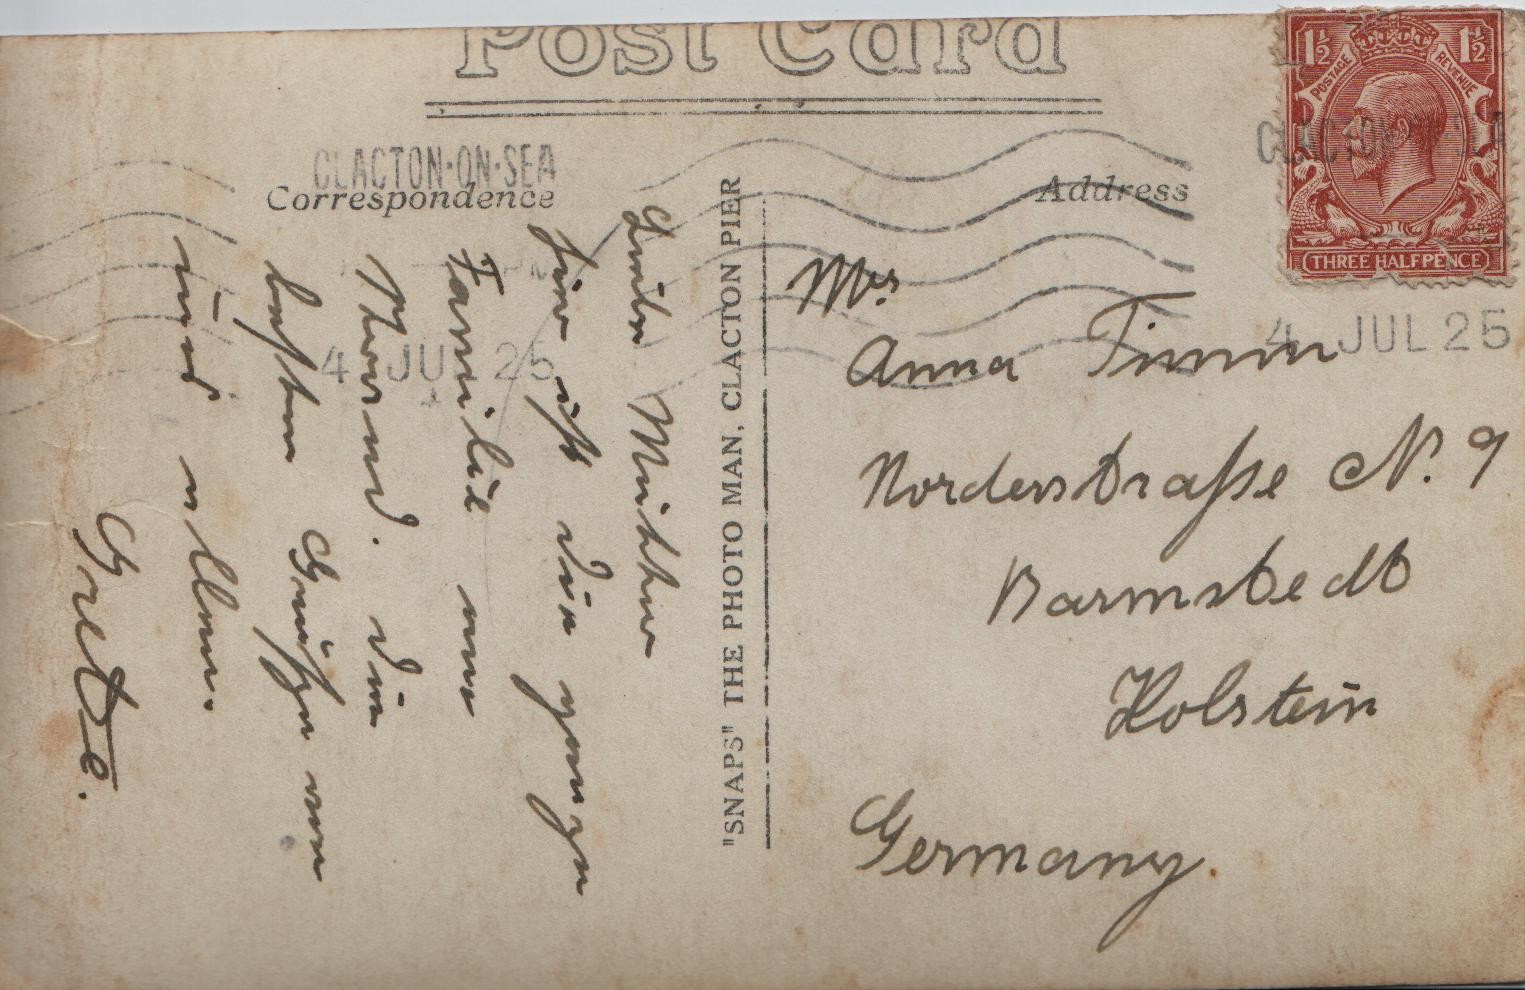 Post Card
CLACTON·ON·SEA
Correspondence
4 JUL 25
Address
1½ 1½
POSTAGE REVENUE
THREE HALFPENCE
CLACTON
4 JUL 25
"SNAPS" THE PHOTO MAN, CLACTON PIER
Mrs
Anna Timm
Norderstraße N. 9
Barmstedt
Holstein
Germany.
Liebe Mutter
hier ist die ganze
Familie von
die
besten Grüße von
uns allen.
Grete.